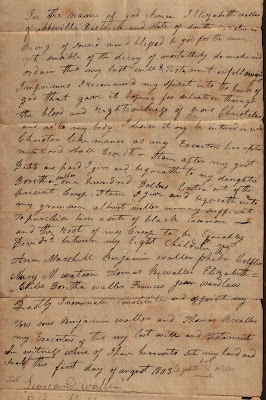 In the name of god Amen I Elizabeth waller
of abbeville District and State of South Carolina
Being of sound mind blessed be god for the same
yet sensable of the decay of mortallity do make and
ordain this my last will & Testament as follows
Imprimus I recommend my spirit into the hands of
god that gave it hoping for salvation through
the blood and Righteousness of Jesus Christ
and as to my body I desire it may be intered in
Christian like manner as my Executors
shall Direct Item after my just
Debts are paid I give and bequeath to my daughter
Doritha waller one hundred Dollars Extra out of the
present Crop Item I give and bequeath unto
my grandson albert waller money sufficent
to purchis him a sute of black
and the Rest of my Estate to be Equally
between my Eight Children
Ann Marshall Benjamin waller
Mary M watson Thomas waller Elizabeth
Childs Doritha waller Frances Jean Wardlaw
Constitute and appoint my
two sons Benjamin waller and Thomas waller
my Executors of this my last will and Testament
In witness where of I have hereunto set my hand and
seal this first day of august 1803
Test Leonard waller